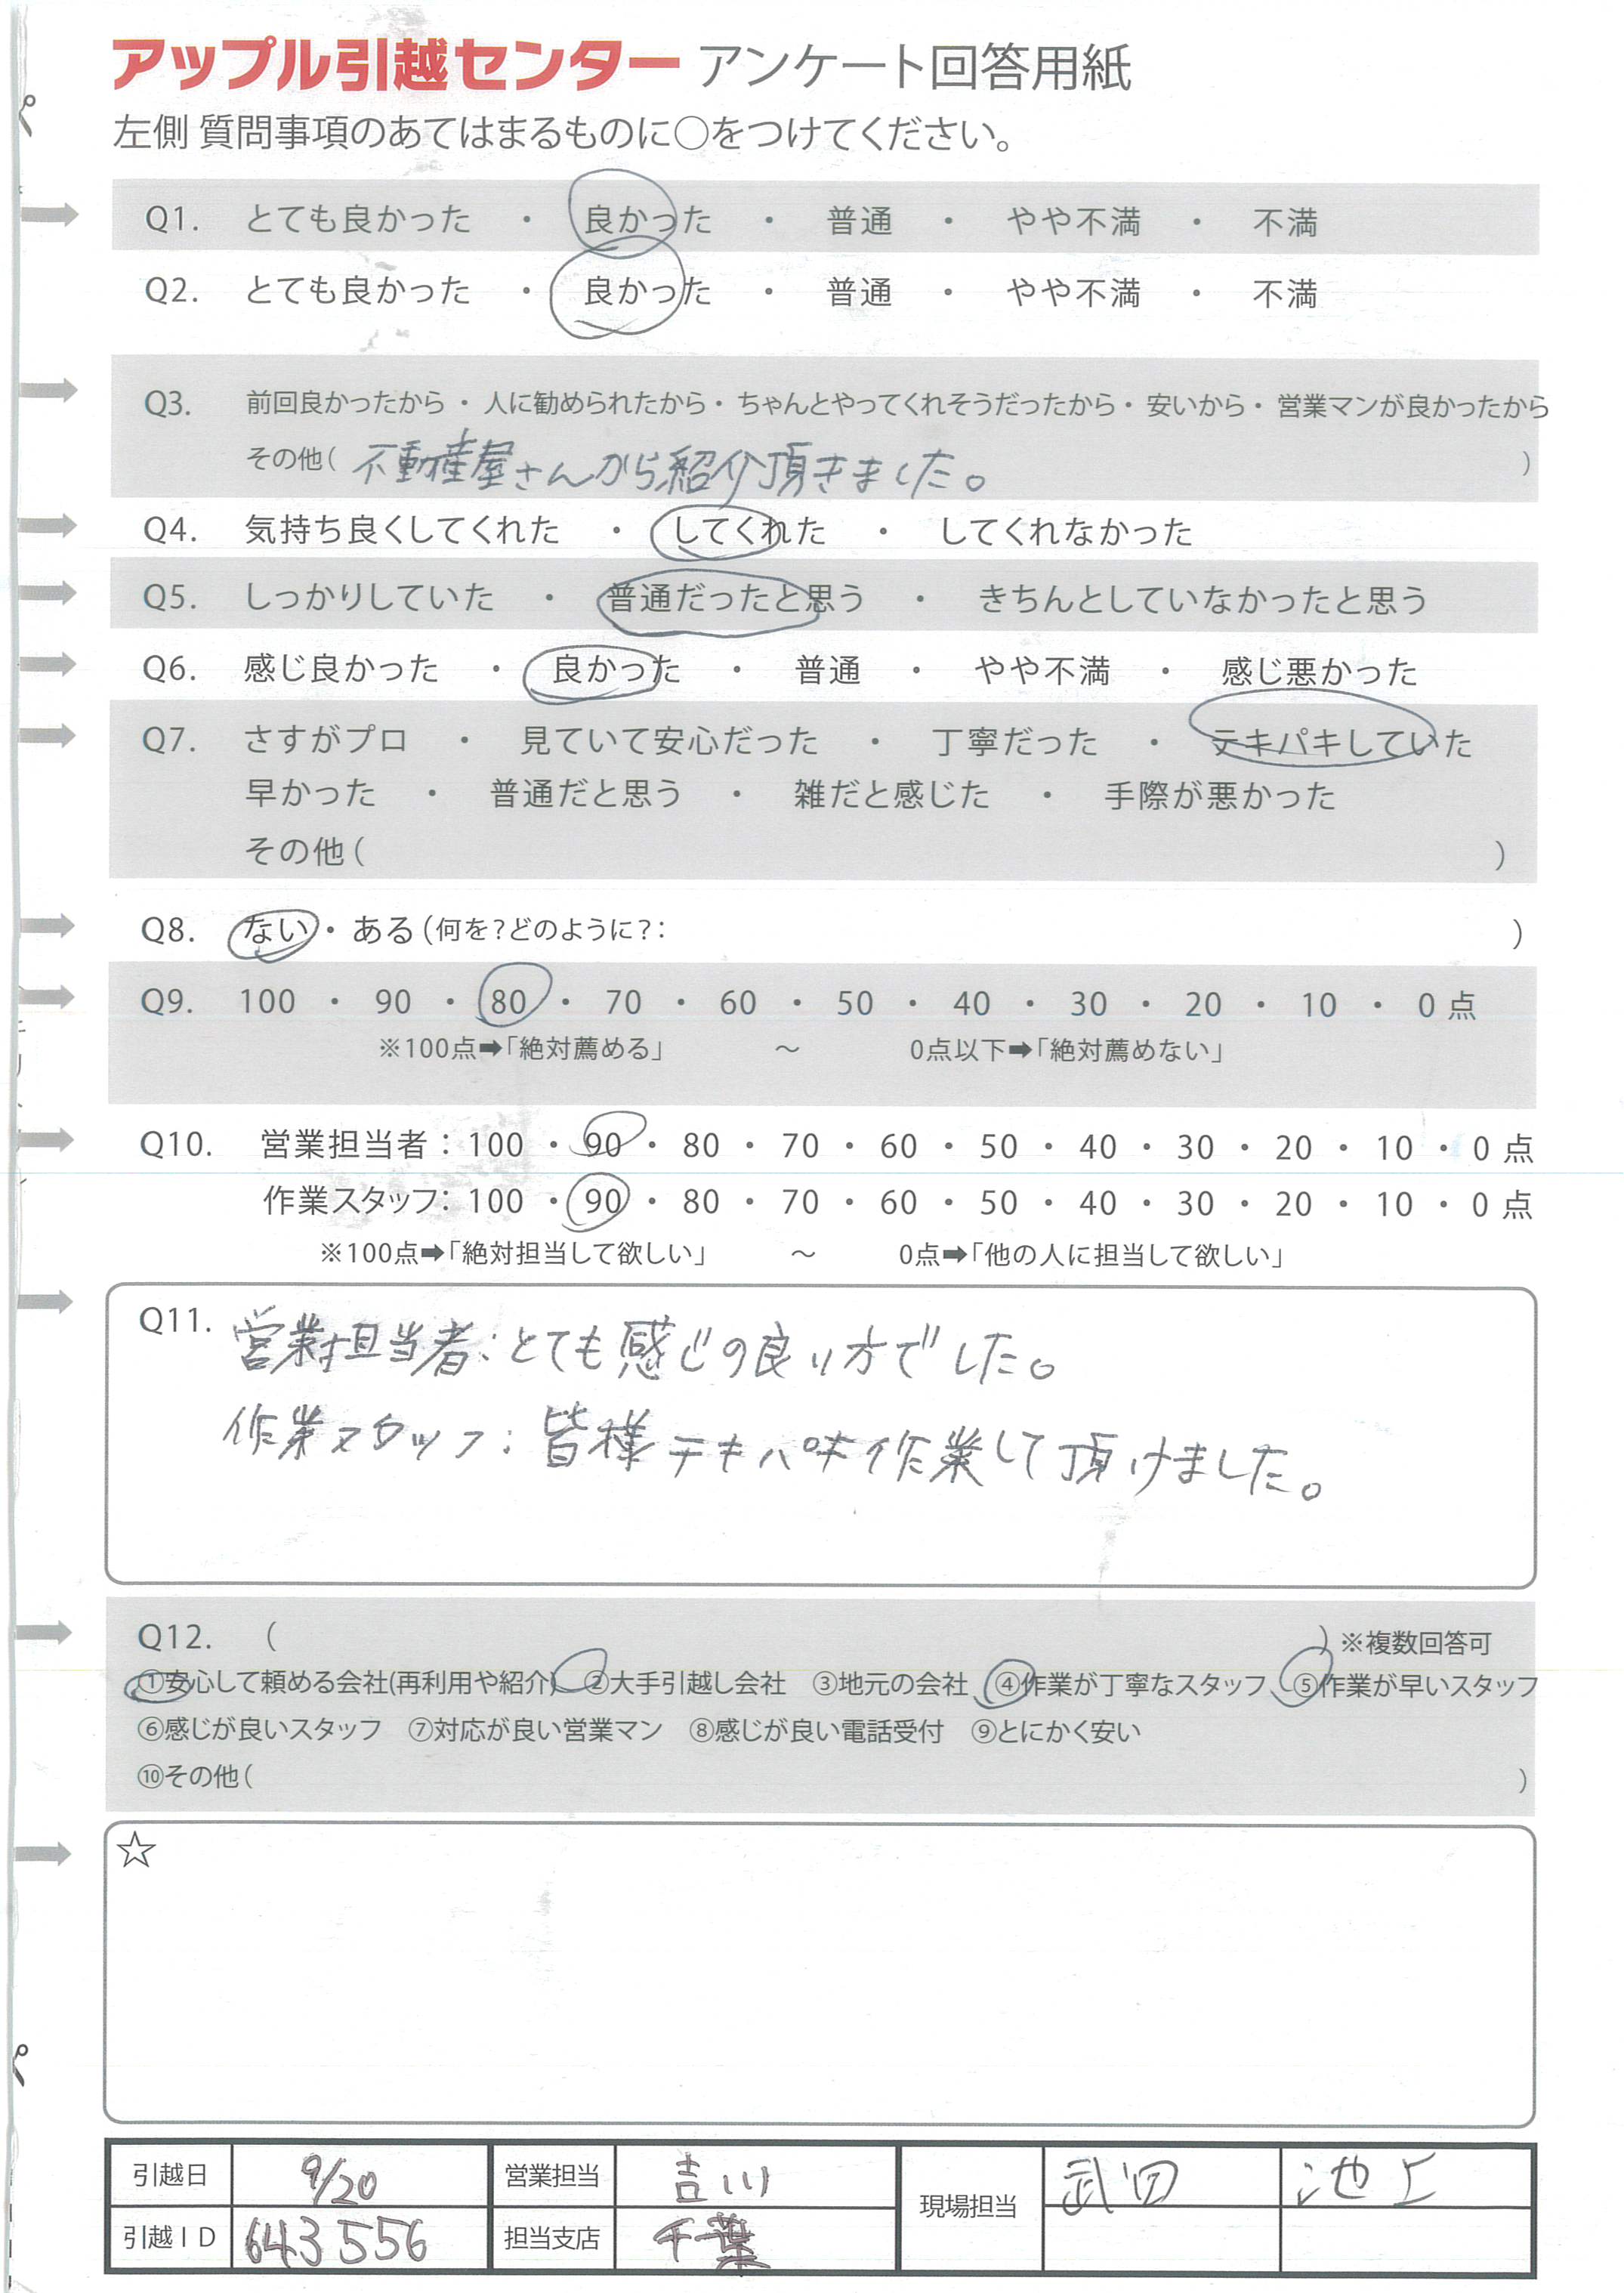 アップル引越センター アンケート回答用紙
左側 質問事項のあてはまるものに○をつけてください。
Q1. とても良かった ・ 良かった ・ 普通 ・ やや不満 ・ 不満
Q2. とても良かった ・ 良かった ・ 普通 ・ やや不満 ・ 不満
Q3. 前回良かったから ・ 人に勧められたから ・ ちゃんとやってくれそうだったから ・ 安いから ・ 営業マンが良かったから
その他( 不動産屋さんから紹介頂きました。 )
Q4. 気持ち良くしてくれた ・ してくれた ・ してくれなかった
Q5. しっかりしていた ・ 普通だったと思う ・ きちんとしていなかったと思う
Q6. 感じ良かった ・ 良かった ・ 普通 ・ やや不満 ・ 感じ悪かった
Q7. さすがプロ ・ 見ていて安心だった ・ 丁寧だった ・ テキパキしていた
早かった ・ 普通だと思う ・ 雑だと感じた ・ 手際が悪かった
その他( )
Q8. ない ・ ある(何を?どのように?: )
Q9. 100 ・ 90 ・ 80 ・ 70 ・ 60 ・ 50 ・ 40 ・ 30 ・ 20 ・ 10 ・ 0 点
※100点➡「絶対薦める」 ～ 0点以下➡「絶対薦めない」
Q10. 営業担当者: 100 ・ 90 ・ 80 ・ 70 ・ 60 ・ 50 ・ 40 ・ 30 ・ 20 ・ 10 ・ 0 点
作業スタッフ: 100 ・ 90 ・ 80 ・ 70 ・ 60 ・ 50 ・ 40 ・ 30 ・ 20 ・ 10 ・ 0 点
※100点➡「絶対担当して欲しい」 ～ 0点➡「他の人に担当して欲しい」
Q11. 営業担当者:とても感じの良い方でした。
作業スタッフ:皆様テキパキ作業して頂けました。
Q12. ( ) ※複数回答可
①安心して頼める会社(再利用や紹介) ②大手引越し会社 ③地元の会社 ④作業が丁寧なスタッフ ⑤作業が早いスタッフ
⑥感じが良いスタッフ ⑦対応が良い営業マン ⑧感じが良い電話受付 ⑨とにかく安い
⑩その他( )
☆
引越日 9/20 営業担当 吉川 現場担当 武田 池上
引越ID 643556 担当支店 千葉